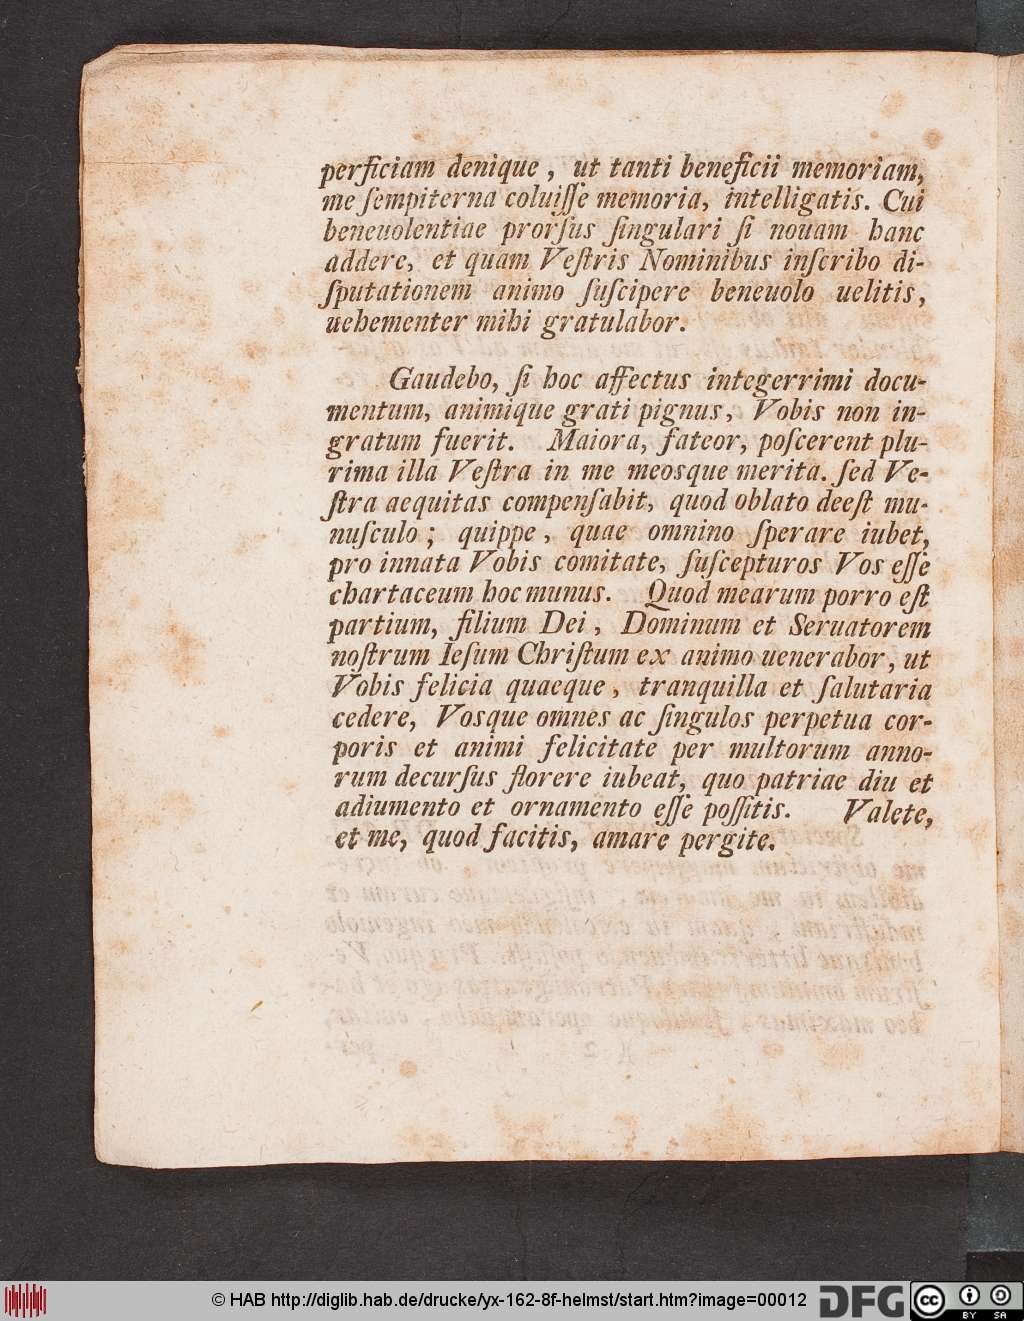 perficiam denique, ut tanti beneficii memoriam,
me ſempiterna coluiſſe memoria, intelligatis. Cui
beneuolentiae prorſus ſingulari ſi nouam hanc
addere, et quam Veſtris Nominibus inſcribo di-
ſputationem animo ſuſcipere beneuolo uelitis,
uehementer mihi gratulabor.
Gaudebo, ſi hoc affectus integerrimi docu-
mentum, animique grati pignus, Vobis non in-
gratum fuerit. Maiora, fateor, poſcerent plu-
rima illa Veſtra in me meosque merita. ſed Ve-
ſtra aequitas compenſabit, quod oblato deeſt mu-
nuſculo; quippe, quae omnino ſperare iubet,
pro innata Vobis comitate, ſuſcepturos Vos eſſe
chartaceum hoc munus. Quod mearum porro eſt
partium, filium Dei, Dominum et Seruatorem
noſtrum Ieſum Chriſtum ex animo uenerabor, ut
Vobis felicia quaeque, tranquilla et ſalutaria
cedere, Vosque omnes ac ſingulos perpetua cor-
poris et animi felicitate per multorum anno-
rum decurſus florere iubeat, quo patriae diu et
adiumento et ornamento eſſe poſſitis. Valete,
et me, quod facitis, amare pergite.
© HAB http://diglib.hab.de/drucke/yx-162-8f-helmst/start.htm?image=00012
DFG
cc BY SA